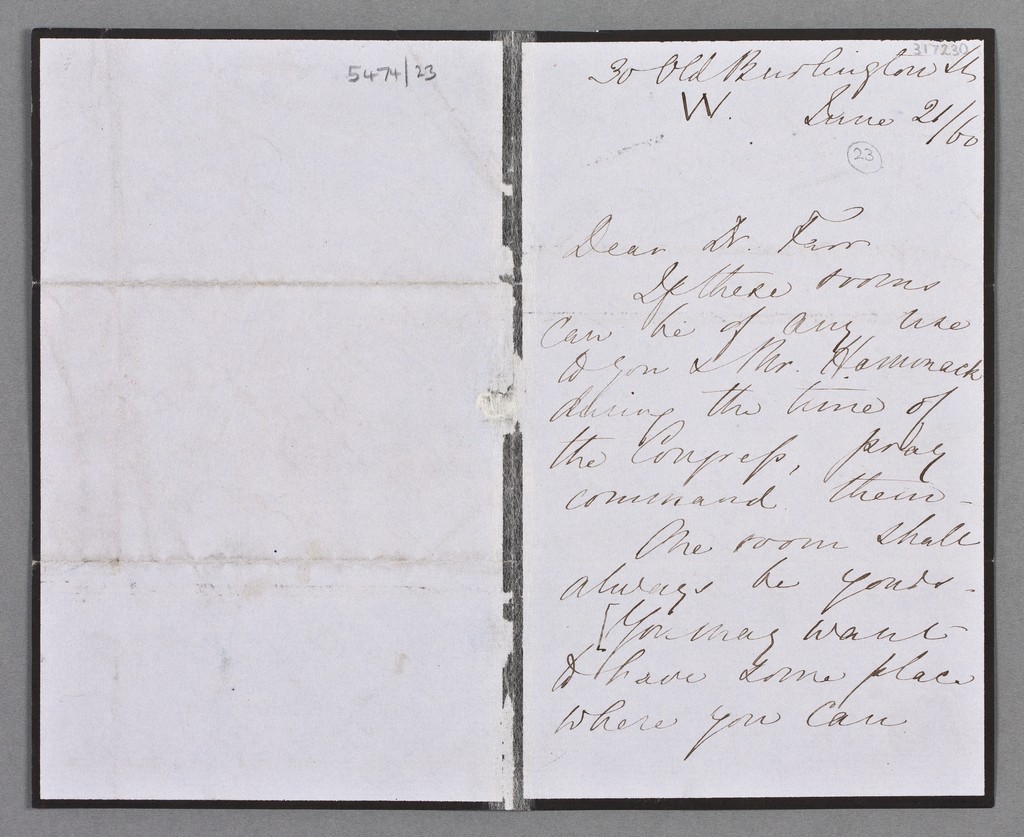 5474/23
317230
30 Old Burlington St
W. June 21/60
23
Dear Dr. Farr
If these rooms
can be of any use
to you & Mr. Hammack
during the time of
the Congress, pray
command them -
One room shall
always be yours -
[You may want
to have some place
where you can